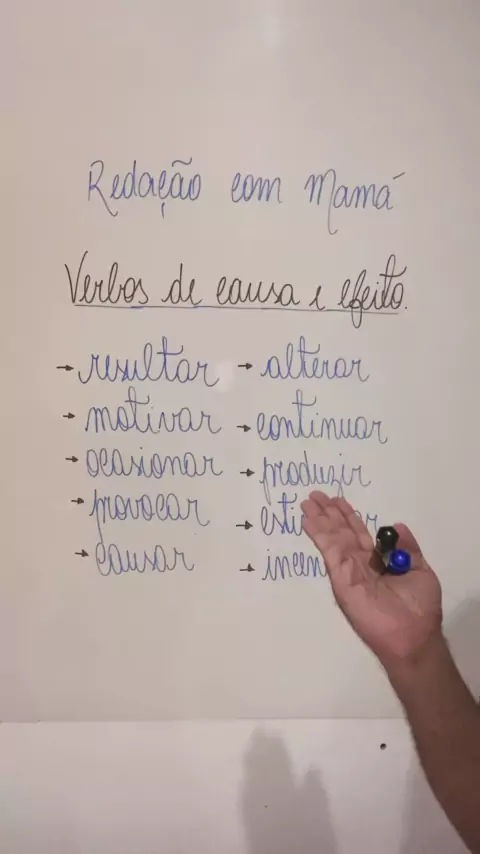 Redação com Mamá
Verbos de causa e efeito.
→ resultar → alterar
→ motivar → continuar
→ ocasionar → produzir
→ provocar →
→ causar →